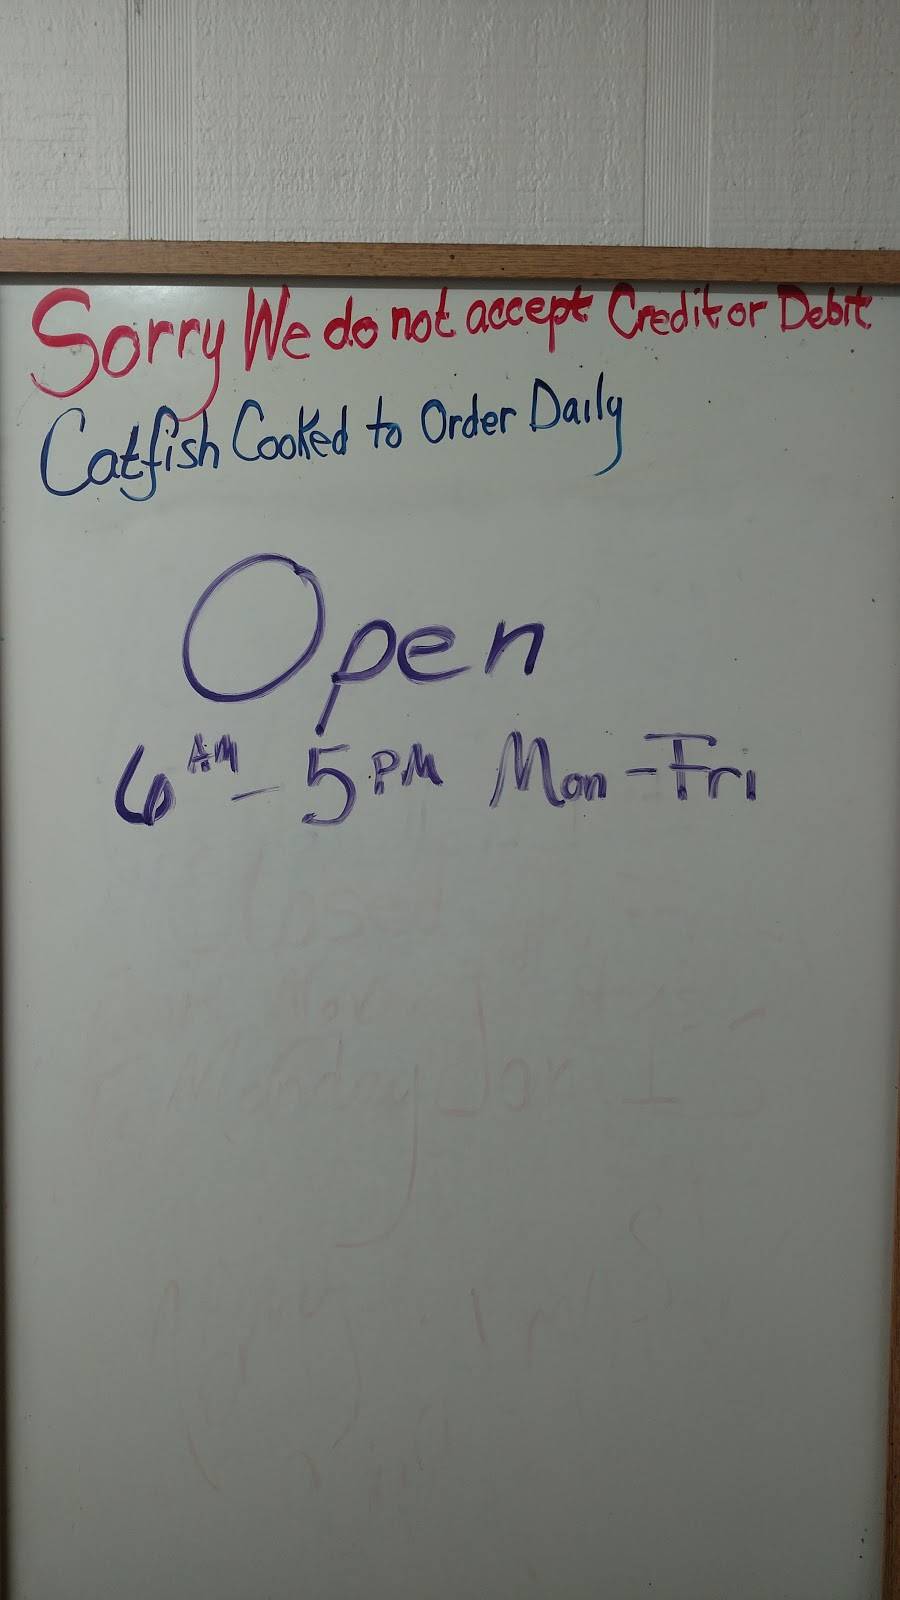 Sorry We do not accept Credit or Debit
Catfish Cooked to Order Daily
Open
6 AM - 5 PM Mon - Fri
Closed
Monday Jan 1